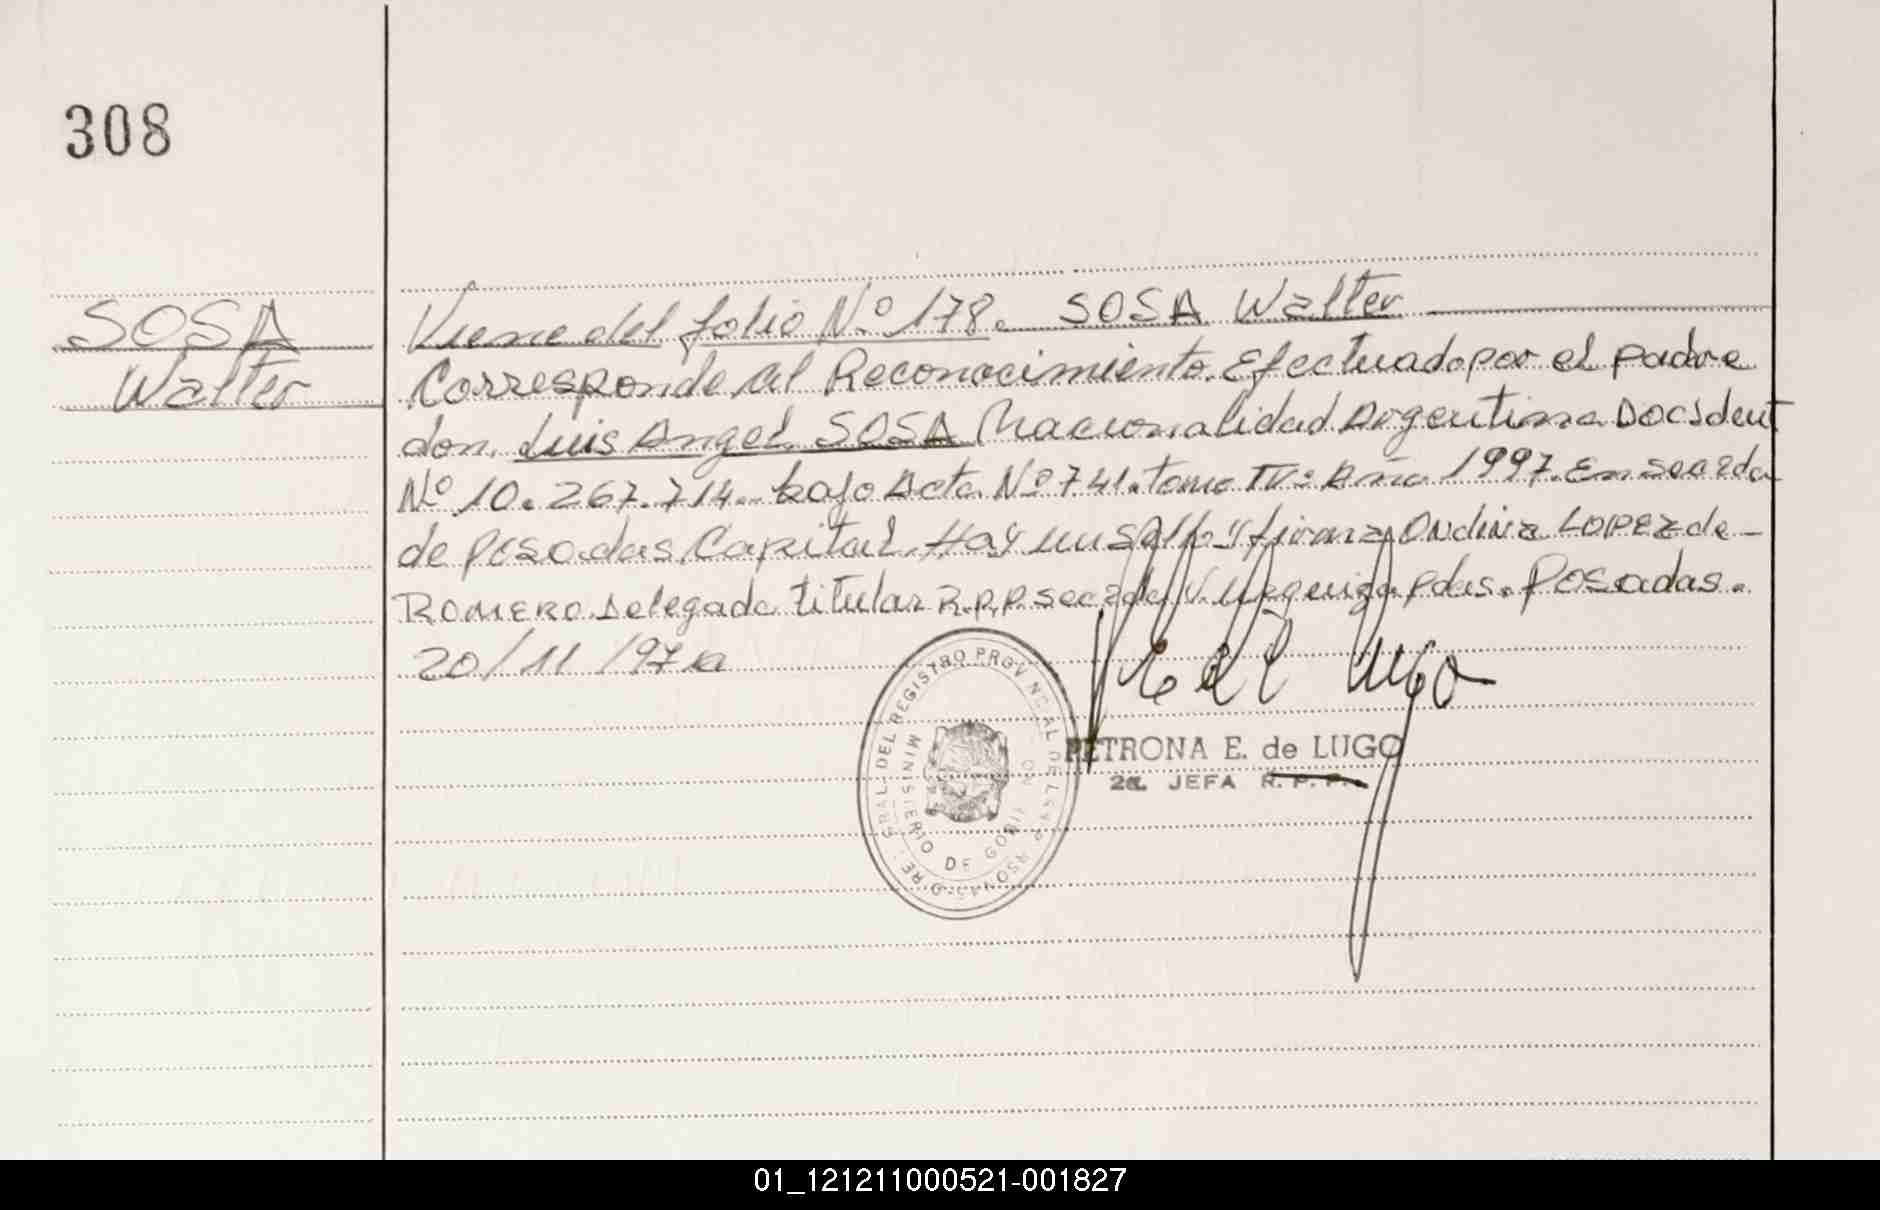 308
SOSA
Walter
Viene del folio Nº 178. SOSA Walter
Corresponde al Reconocimiento. Efectuado por el padre
don. Luis Angel SOSA Nacionalidad Argentina Doc. Ident
Nº 10.267.714. bajo Acta Nº 741. tomo IVº Año 1997. En Secc 2da
de posadas Capital. Hay un sello y firma, Ondina LOPEZ de -
ROMERO. Delegada titular R.P.P. secc 2da V. Urquiza Pdas. Posadas.
20/11/97
PETRONA E. de LUGO
2a. JEFA R.P.P.
DEL REGISTRO PROVINCIAL DE LAS PERSONAS
MINISTERIO DE GOBIERNO
01_121211000521-001827